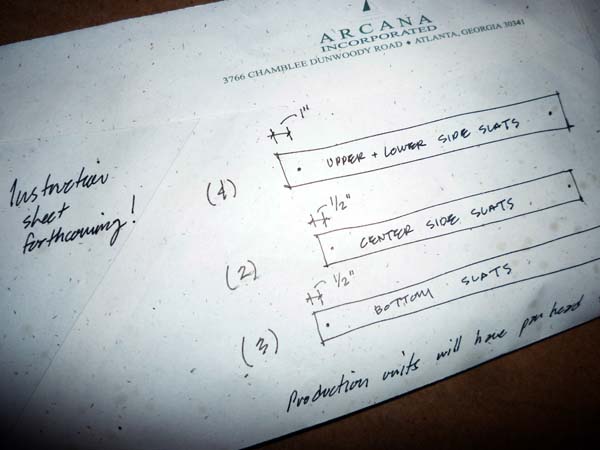 ARCANA
INCORPORATED
3766 CHAMBLEE DUNWOODY ROAD • ATLANTA, GEORGIA 30341
1"
(4) UPPER + LOWER SIDE SLATS
Instruction
sheet
forthcoming!
1/2"
(2) CENTER SIDE SLATS
1/2"
(3) BOTTOM SLATS
Production units will have pan head